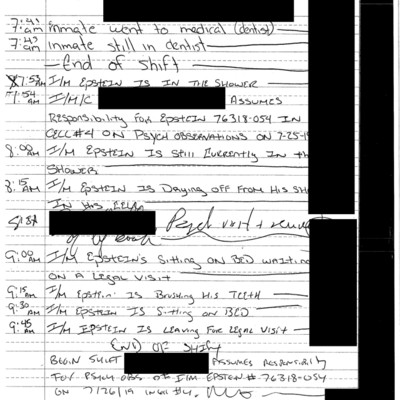 7:41 am inmate went to medical (dentist)
7:43 am inmate still in dentist
End of shift
7:53 am I/M EPSTEIN IS IN THE SHOWER
7:54 am I/M/C ASSUMES
RESPONSIBILITY FOR EPSTEIN 76318-054 IN
CELL #4 ON PSYCH OBSERVATIONS ON 7-25-19
8:00 AM I/M EPSTEIN IS STILL CURRENTLY IN the
SHOWER
8:15 AM I/M EPSTEIN IS DRYING OFF FROM HIS SH
IN HIS CELL
Psych visit +
9:00 AM I/M EPSTEIN'S SITTING ON BED WAITING
ON A LEGAL VISIT
9:15 AM I/M EPSTEIN IS BRUSHING HIS TEETH
9:30 AM I/M EPSTEIN IS SITTING ON BED
9:45 AM I/M EPSTEIN IS LEAVING FOR LEGAL VISIT
END OF SHIFT
BEGIN SHIFT ASSUMES RESPONSIBILITY
FOR PSYCH OBS. OF I/M EPSTEIN # 76318-054
ON 7/26/19 IN Cell #4.